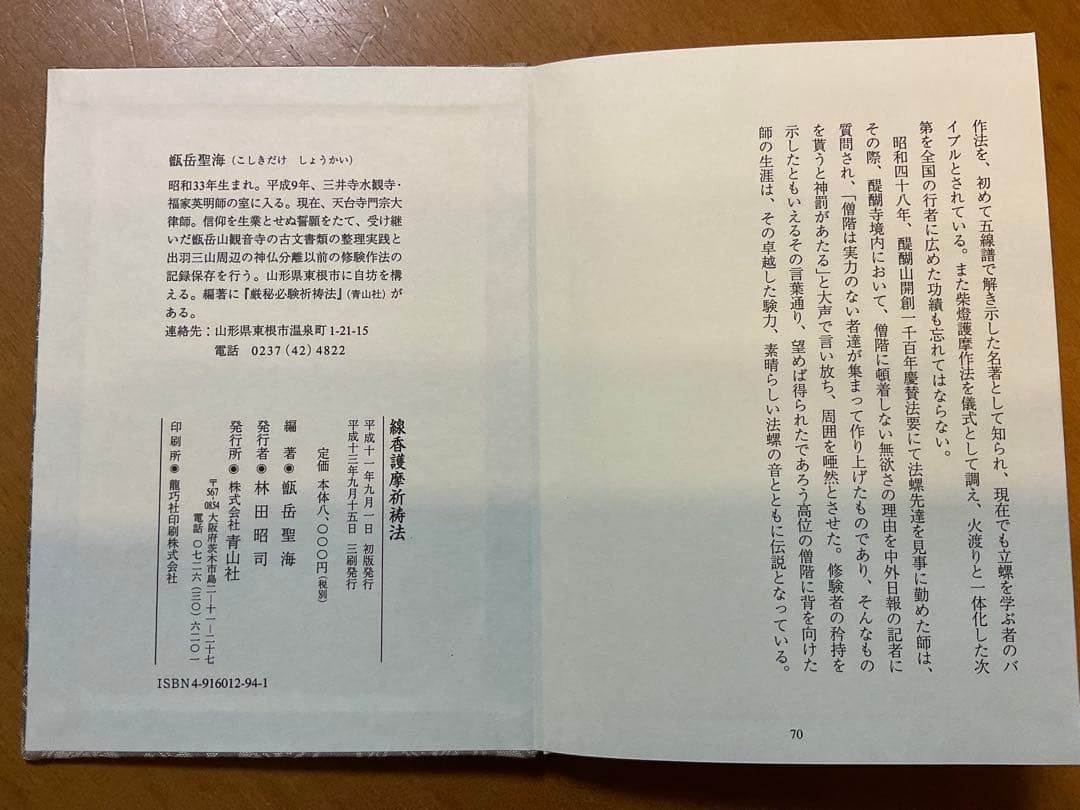 作法を、初めて五線譜で解き示した名著として知られ、現在でも立螺を学ぶ者のバ
イブルとされている。また柴燈護摩作法を儀式として調え、火渡りと一体化した次
第を全国の行者に広めた功績も忘れてはならない。
昭和四十八年、醍醐山開創一千百年慶賛法要にて法螺先達を見事に勤めた師は、
その際、醍醐寺境内において、僧階に頓着しない無欲さの理由を中外日報の記者に
質問され、「僧階は実力のない者達が集まって作り上げたものであり、そんなもの
を貰うと神罰があたる」と大声で言い放ち、周囲を唖然とさせた。修験者の矜持を
示したともいえるその言葉通り、望めば得られたであろう高位の僧階に背を向けた
師の生涯は、その卓越した験力、素晴らしい法螺の音とともに伝説となっている。
70
甑岳聖海(こしきだけ しょうかい)
昭和33年生まれ。平成9年、三井寺水観寺・
福家英明師の室に入る。現在、天台寺門宗大
律師。信仰を生業とせぬ誓願をたて、受け継
いだ甑岳山観音寺の古文書類の整理実践と
出羽三山周辺の神仏分離以前の修験作法の
記録保存を行う。山形県東根市に自坊を構
える。編著に『厳秘必験祈祷法』(青山社)が
ある。
連絡先:山形県東根市温泉町1-21-15
電話 0237(42)4822
線香護摩祈祷法
平成十一年九月一日 初版発行
平成十三年九月十五日 三刷発行
定価 本体八、〇〇〇円(税別)
編著◉甑岳聖海
発行者◉林田昭司
発行所◉株式会社青山社
〒567-0854 大阪府茨木市島二ー十一ー二十七
電話 〇七二六(三〇)六二〇一
印刷所◉龍巧社印刷株式会社
ISBN4-916012-94-1